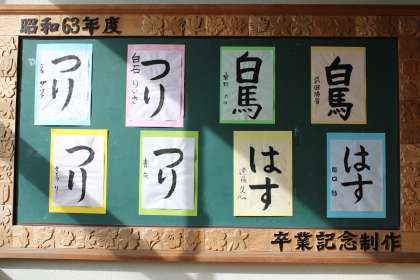 昭和63年度
つり
白石
つり
白馬
白馬
つり
つり
はす
はす
卒業記念制作